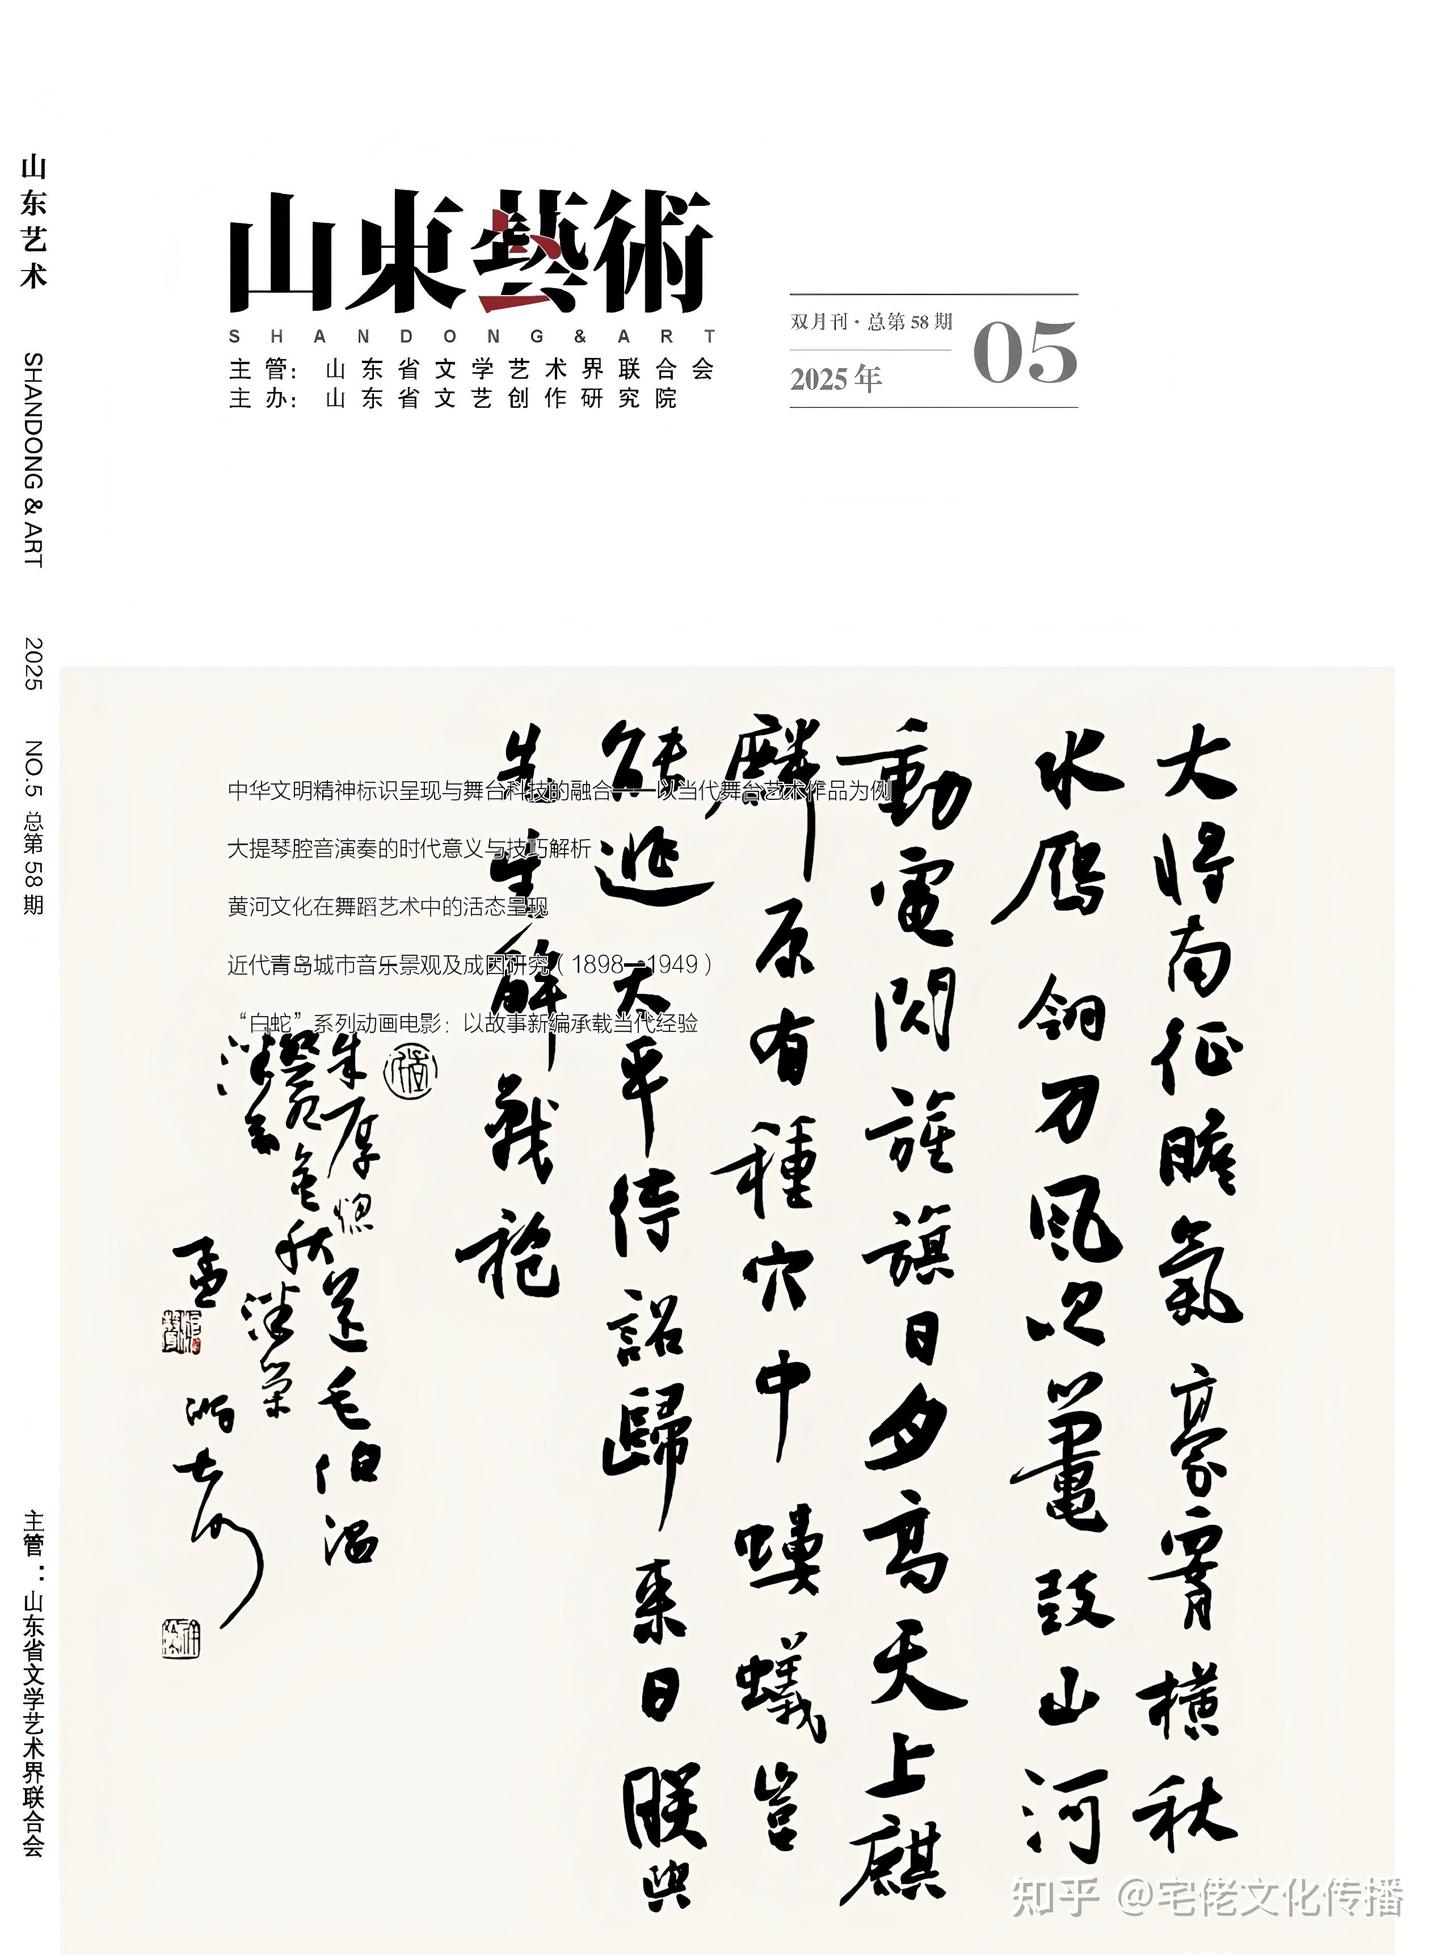 山东艺术
SHANDONG & ART
2025
NO.5 总第 58 期
主管：山东省文学艺术界联合会
山東藝術
SHANDONG&ART
主管：山东省文学艺术界联合会
主办：山东省文艺创作研究院
双月刊·总第 58 期
2025 年
05
中华文明精神标识呈现与舞台科技的融合——以当代舞台艺术作品为例
大提琴腔音演奏的时代意义与技巧解析
黄河文化在舞蹈艺术中的活态呈现
近代青岛城市音乐景观及成因研究（1898—1949）
“白蛇”系列动画电影：以故事新编承载当代经验
大將南征膽氣豪腰橫秋
水鴈翎刀風吹鼉鼓山河
動電閃旌旗日夕高天上麒
麟原有種穴中螻蟻豈
能逃太平待詔歸來日朕與
先生解戰袍
朱厚熜送毛伯温
知乎 @宅佬文化传播